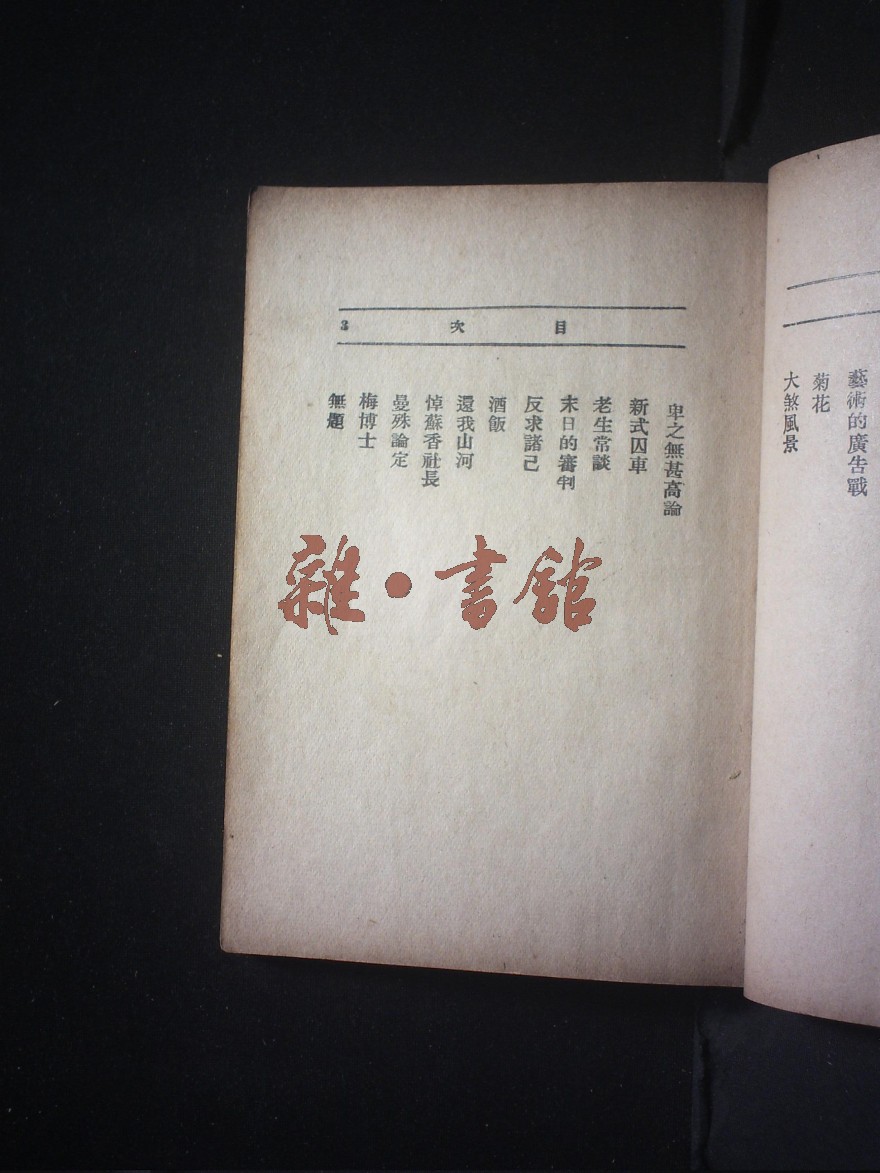 藝術的廣告戰
菊花
大煞風景
目次 3
卑之無甚高論
新式囚車
老生常談
末日的審判
反求諸己
酒飯
還我山河
悼蘇香社長
曼殊論定
梅博士
無題
雜·書館